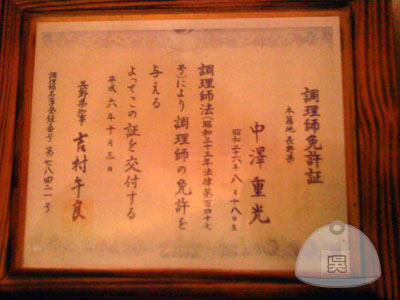 調理師免許証
本籍地 長野県
中澤重光
昭和二六年八月十八日生
調理師法(昭和三十三年法律第百四十七
号)により調理師の免許を
与える
よってこの証を交付する
平成六年十月三日
長野県知事 吉村午良
調理師名簿登録番号 第七八四二一号
呉